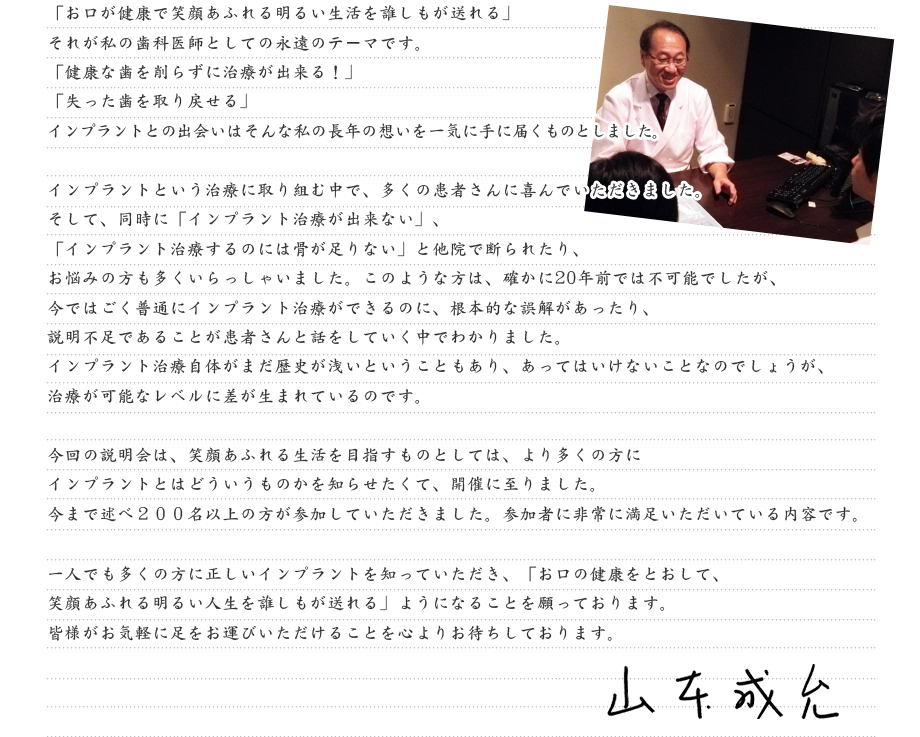 「お口が健康で笑顔あふれる明るい生活を誰しもが送れる」
それが私の歯科医師としての永遠のテーマです。
「健康な歯を削らずに治療が出来る！」
「失った歯を取り戻せる」
インプラントとの出会いはそんな私の長年の想いを一気に手に届くものとしました。
インプラントという治療に取り組む中で、多くの患者さんに喜んでいただきました。
そして、同時に「インプラント治療が出来ない」、
「インプラント治療するのには骨が足りない」と他院で断られたり、
お悩みの方も多くいらっしゃいました。このような方は、確かに20年前では不可能でしたが、
今ではごく普通にインプラント治療ができるのに、根本的な誤解があったり、
説明不足であることが患者さんと話をしていく中でわかりました。
インプラント治療自体がまだ歴史が浅いということもあり、あってはいけないことなのでしょうが、
治療が可能なレベルに差が生まれているのです。
今回の説明会は、笑顔あふれる生活を目指すものとしては、より多くの方に
インプラントとはどういうものかを知らせたくて、開催に至りました。
今まで述べ２００名以上の方が参加していただきました。参加者に非常に満足いただいている内容です。
一人でも多くの方に正しいインプラントを知っていただき、「お口の健康をとおして、
笑顔あふれる明るい人生を誰しもが送れる」ようになることを願っております。
皆様がお気軽に足をお運びいただけることを心よりお待ちしております。
山本成允